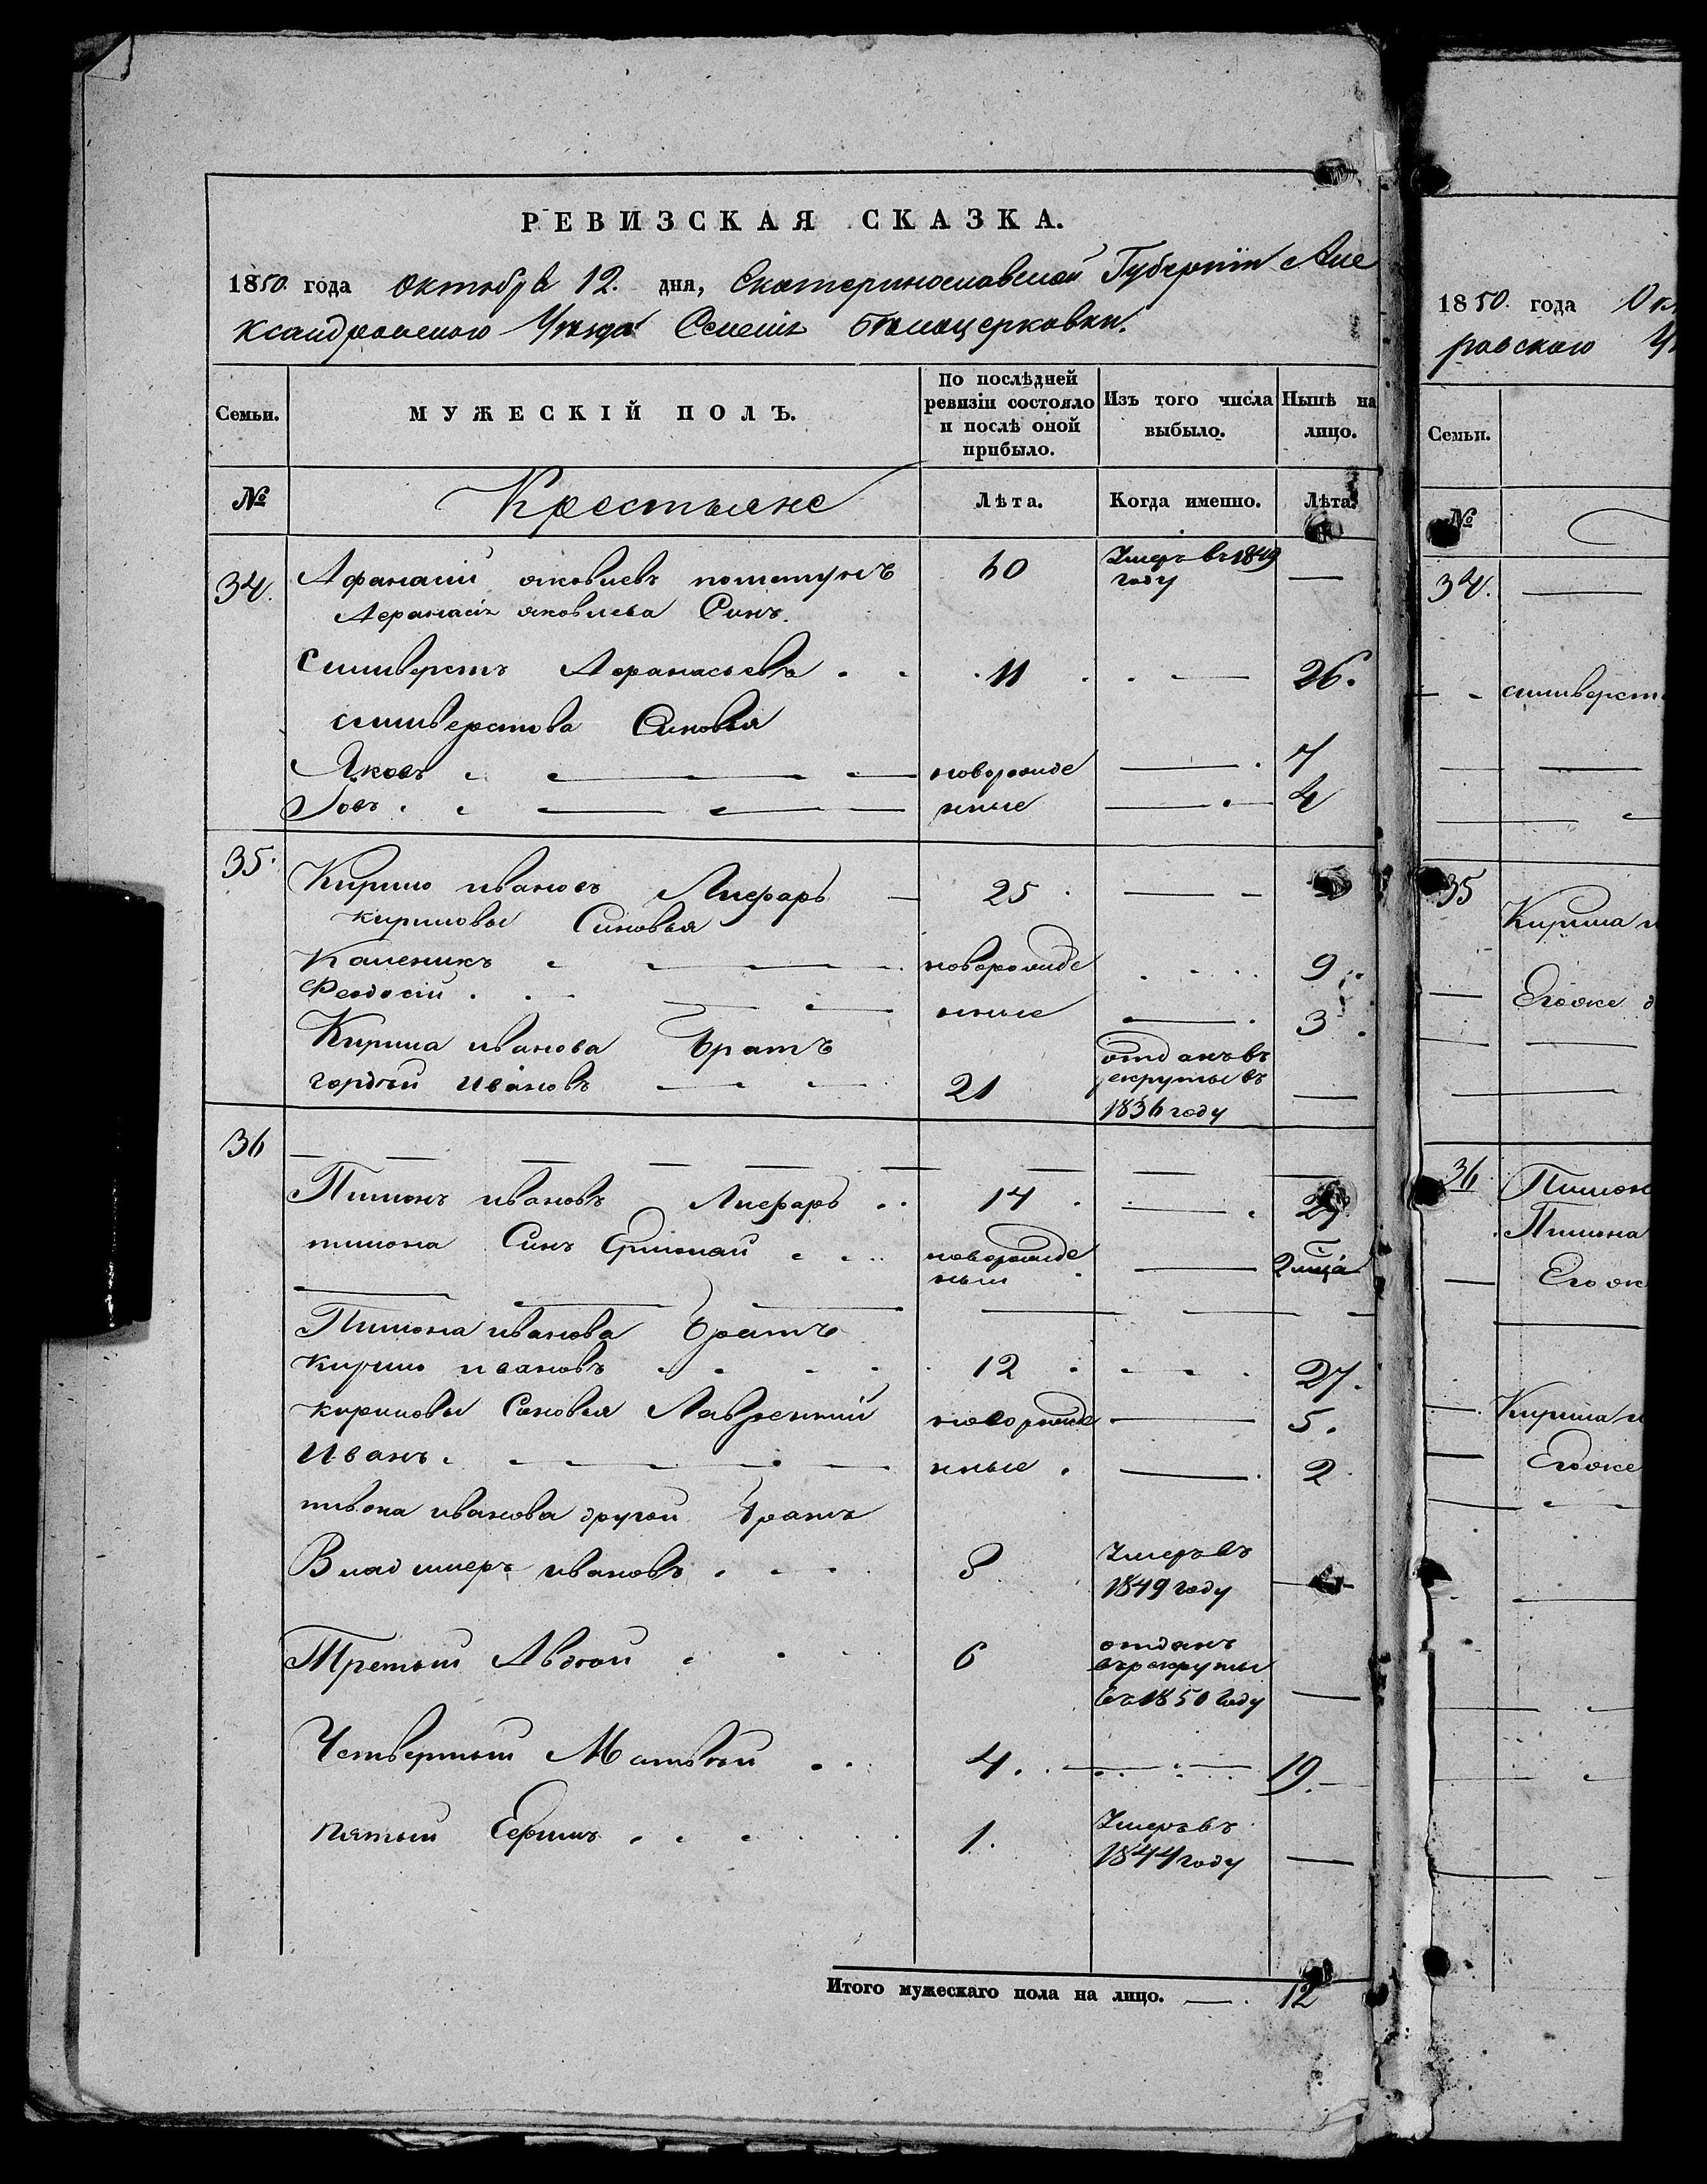 РЕВИЗСКАЯ СКАЗКА.
1850 года Октября 12. дня, Екатеринославской Губерніи Але
ксандровского Уезда Селенія Белоцерковки.
Семьи. МУЖЕСКІЙ ПОЛЪ. По послѣдней ревизіи состояло и послѣ оной прибыло. Изъ того числа выбыло. Нынѣ на лицо.
№ Крестьяне Лѣта. Когда именно. Лѣта.
34. Афанасій яковлевъ 60 Умеръ въ 1849 году —
Афанасія яковлева Синъ.
Силиверстъ Афанасьевъ 11 — 26.
силиверстова Синовья
Яковъ новорожде — 7
Іовъ нные — 4
35. Кирило ивановъ Лифарь 25 —
кириловы Синовья
Каленикъ новорожде 9
Феодосій нные — 3
Кирила иванова братъ
гордѣй ивановъ 21 отданъ въ рекруты въ 1836 году —
36
Пимонъ ивановъ Лифарь 14 — 29
пимона Синъ Ермолай новорожде нный — 2 мца
Пимона иванова братъ
кирило ивановъ 12 — 27.
кириловы Синовья Лаврентий новорожде — 5.
Иванъ нные — 2
пивона иванова другой братъ
Владимеръ ивановъ 8 Умеръ въ 1849 году —
Третьий Авдѣй 6 отданъ въ рекруты въ 1850 году —
Четвертый Матвѣй 4. — 19.
пятый Ефимъ 1. Умеръ въ 1844 году —
Итого мужескаго пола на лицо. — 12
1850 года Ок
ровскаго
Семьи.
№
34. —
силиверст
35 Кирила и
Егоже д
36 Пимон
Пимона
Его ж
Кирила и
Егоже